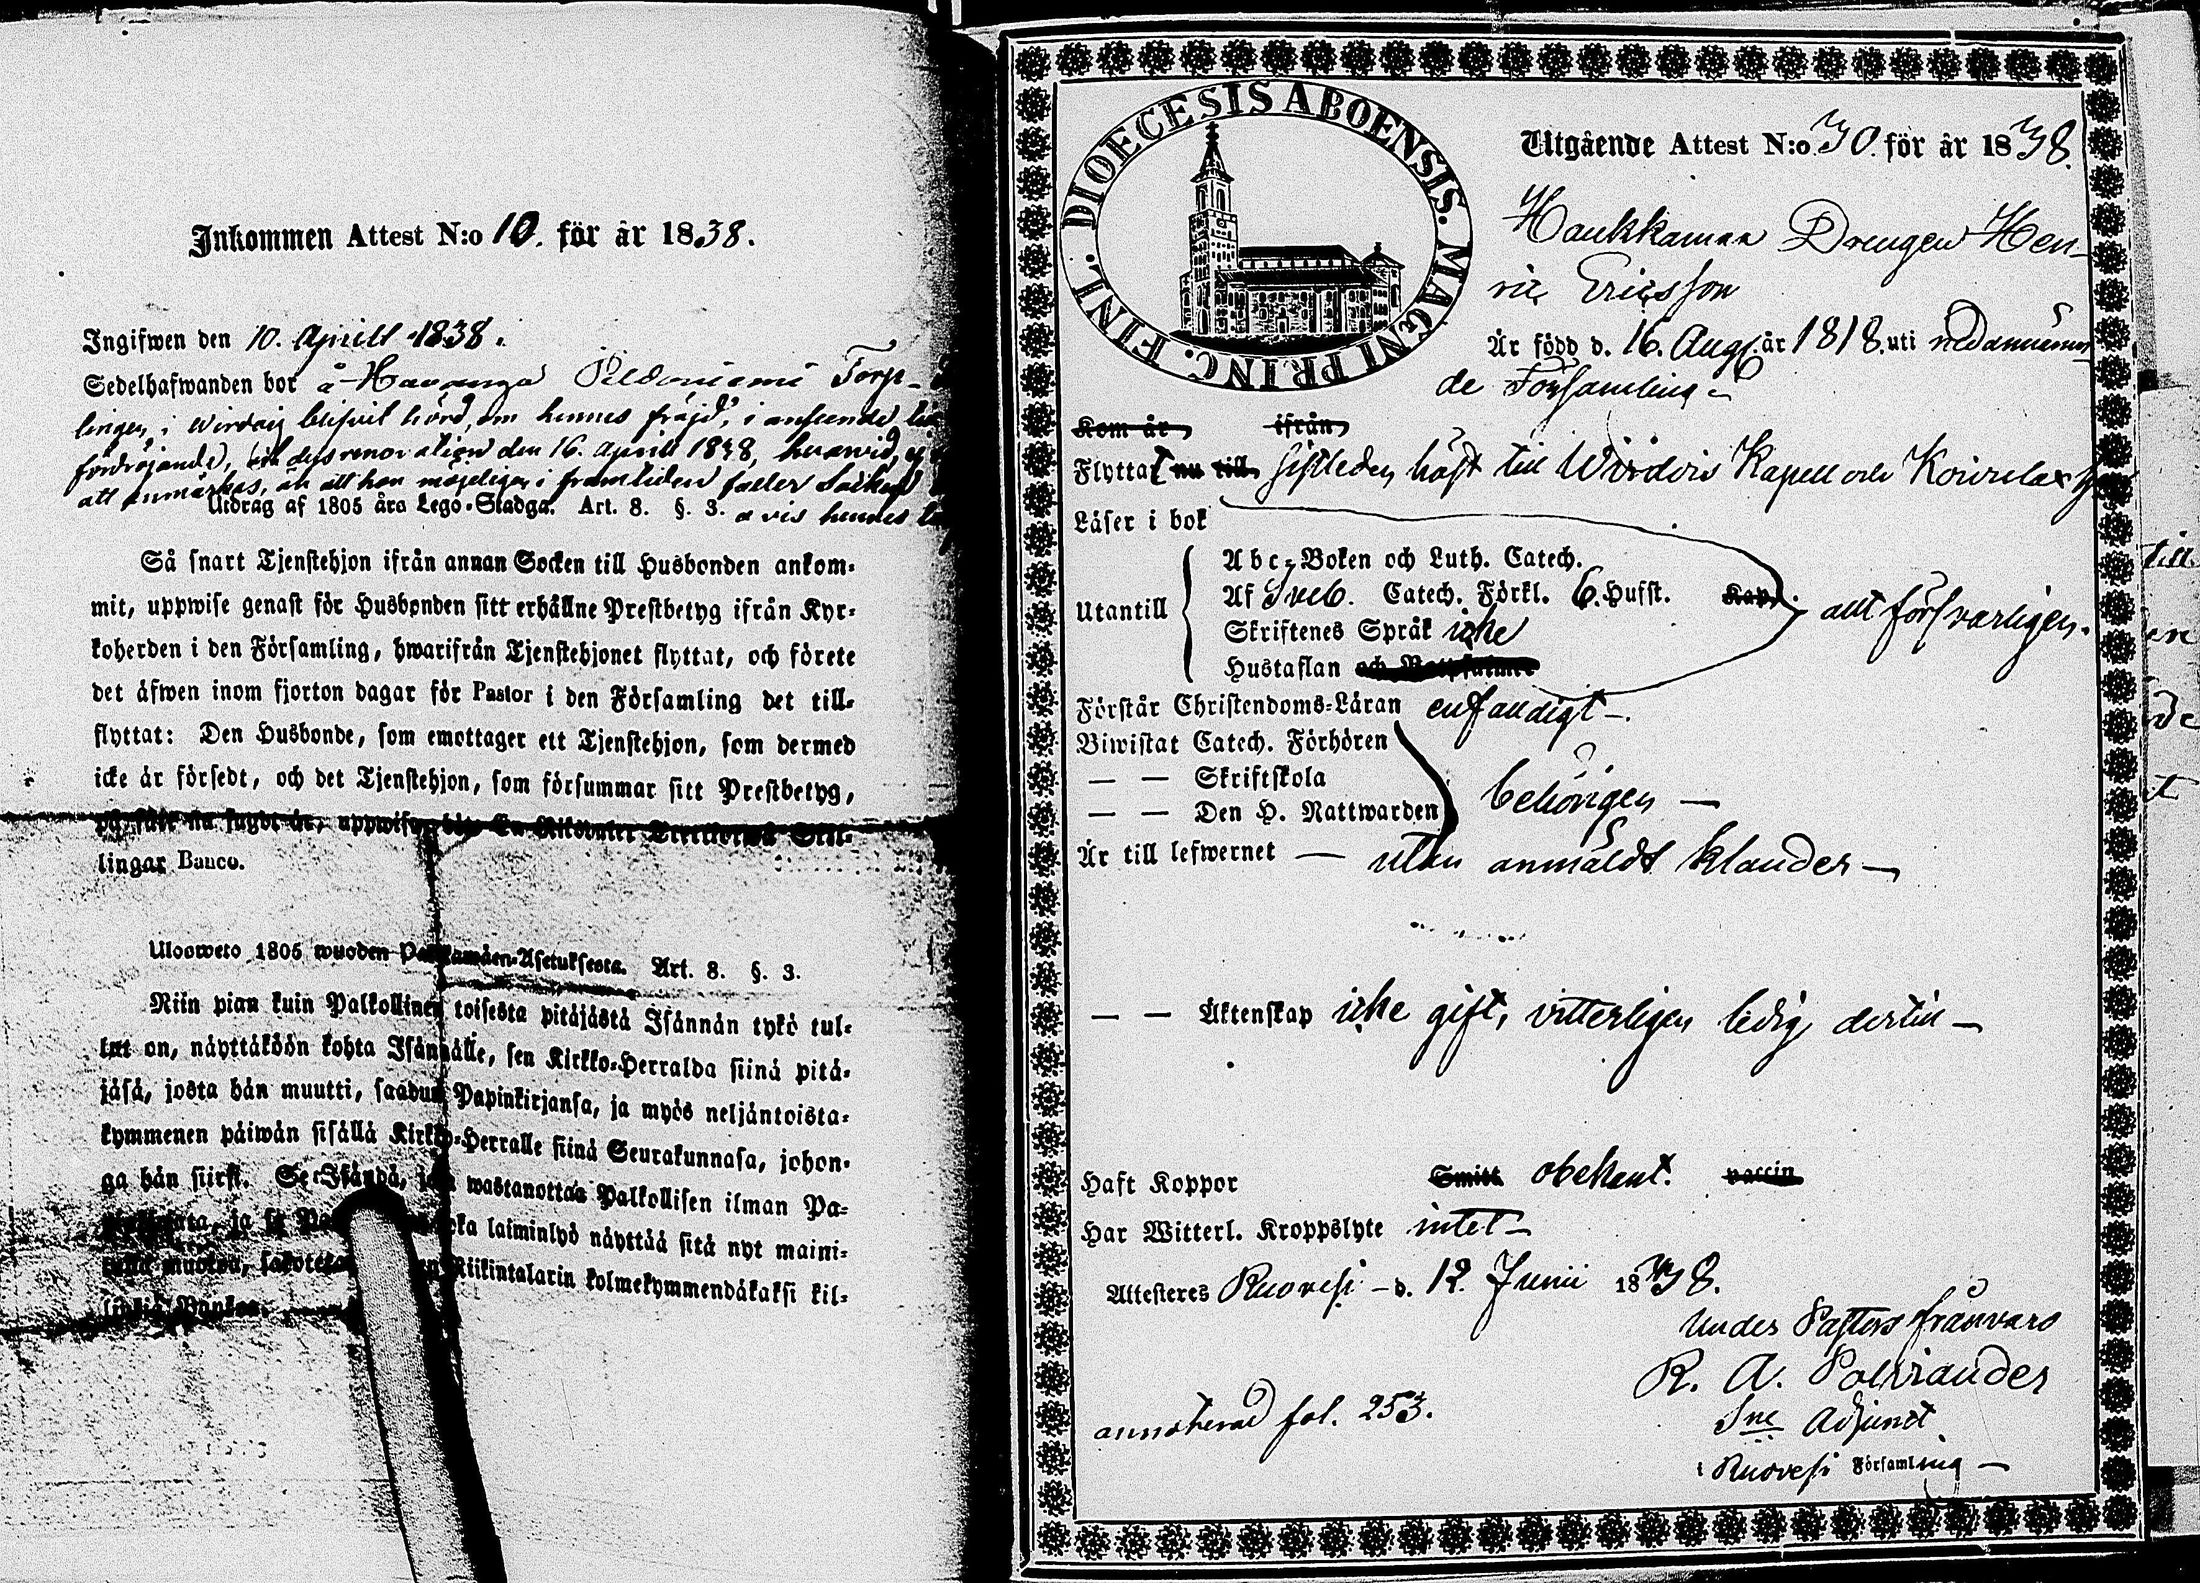 Inkommen Attest N:o 10. för år 1838.
Ingifwen den 10. Aprill 1838.
Sedelhafwanden bor å Havanga Torp-
lingen, i blifvit hörd, om hennes fräjd, i anseende
fördröjande, dess renovation den 16. Aprill 1838, hvarvid
att anmärkas, än att hon möjeligen i framtiden
Utdrag af 1805 års Lego-Stadga. Art. 8. §. 3. hennes
Så snart Tjenstehjon ifrån annan Socken till Husbonden ankom-
mit, uppwise genast för Husbonden sitt erhållne Prestbetyg ifrån Kyr-
koherden i den Församling, hwarifrån Tjenstehjonet flyttat, och förete
det äfwen inom fjorton dagar för Pastor i den Församling det till-
flyttat: Den Husbonde, som emottager ett Tjenstehjon, som dermed
icke är försedt, och det Tjenstehjon, som försummar sitt Prestbetyg,
på sätt nu sagdt är, uppwisa, En Riksdaler Skil-
lingar Banco.
Ulosweto 1805 wuoden Palkawäen-Asetuksesta. Art. 8. §. 3.
Niin pian kuin Palkollinen toisesta pitäjästä Isännän tykö tul-
lut on, näyttäköön kohta Isännälle, sen Kirkko-Herralda siinä pitä-
jäsä, josta hän muutti, saadun Papinkirjansa, ja myös neljäntoista-
kymmenen päiwän sisällä Kirkko-Herralle siinä Seurakunnasa, johon-
ga hän siirsi. Se Isändä, joka wastanottaa Palkollisen ilman Pa-
ja se joka laiminlyö näyttää sitä nyt maini-
tulla muotoa, Riikintalarin kolmekymmendäkaksi kil-
lingiä Bankoa.
DIOECESIS ABOENSIS. MAGNI PRINC. FINL.
Utgående Attest N:o 30. för år 1838.
Haukkamaa Drengen Hen-
ric Ericsson
Är född d. 16. Aug. år 1818. uti nedannämn-
de Församling
Kom år ifrån
Flyttat nu till sistleden höst till Wirdois Kapell och Koivula
Läser i bok
Abc-Boken och Luth. Catech.
Utantill Af Sveb. Catech. Förkl. 6. Hufst. Kap. allt försvarligen.
Skriftenes Språk icke
Hustaflan och
Förstår Christendoms-Läran enfaldigt
Biwistat Catech. Förhören
— — Skriftskola behörigen —
— — Den H. Nattwarden
Är till lefwernet — utan anmäldt klander —
— — Äktenskap icke gift, vitterligen ledig dertill —
Haft Koppor Smitt obekant. vaccin
Har Witterl. Kroppslyte intet —
Attesteres Ruovesi — d. 12. Junii 1838.
Under Pastors frånvaro
R. A. Polviander
Sne Adjunct
i Ruovesi Församling —
annoterad fol. 253.
till